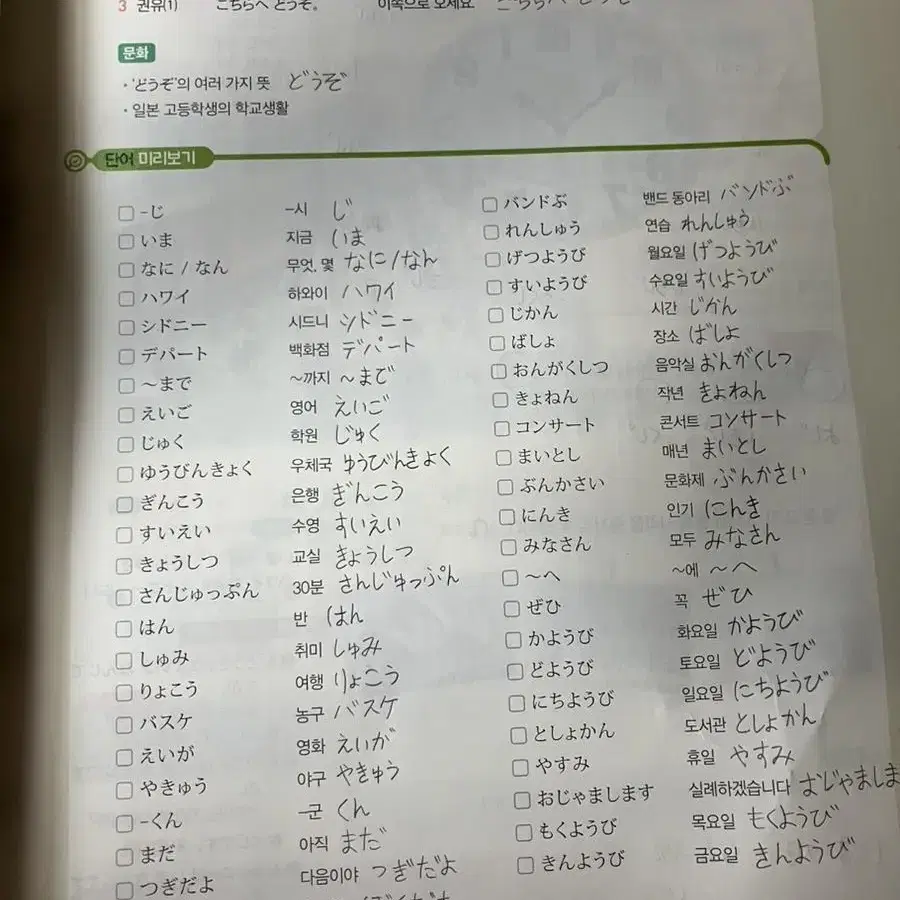 3 권유(1) こちらへ どうぞ。 이쪽으로 오세요. こちらへ どうぞ
문화
· 'どうぞ'의 여러 가지 뜻 どうぞ
· 일본 고등학생의 학교생활
단어 미리보기
-じ -시 じ
いま 지금 いま
なに / なん 무엇, 몇 なに/なん
ハワイ 하와이 ハワイ
シドニー 시드니 シドニー
デパート 백화점 デパート
~まで ~까지 ~まで
えいご 영어 えいご
じゅく 학원 じゅく
ゆうびんきょく 우체국 ゆうびんきょく
ぎんこう 은행 ぎんこう
すいえい 수영 すいえい
きょうしつ 교실 きょうしつ
さんじゅっぷん 30분 さんじゅっぷん
はん 반 はん
しゅみ 취미 しゅみ
りょこう 여행 りょこう
バスケ 농구 バスケ
えいが 영화 えいが
やきゅう 야구 やきゅう
-くん -군 くん
まだ 아직 まだ
つぎだよ 다음이야 つぎだよ
バンドぶ 밴드 동아리 バンドぶ
れんしゅう 연습 れんしゅう
げつようび 월요일 げつようび
すいようび 수요일 すいようび
じかん 시간 じかん
ばしょ 장소 ばしょ
おんがくしつ 음악실 おんがくしつ
きょねん 작년 きょねん
コンサート 콘서트 コンサート
まいとし 매년 まいとし
ぶんかさい 문화제 ぶんかさい
にんき 인기 にんき
みなさん 모두 みなさん
~へ ~에 ~へ
ぜひ 꼭 ぜひ
かようび 화요일 かようび
どようび 토요일 どようび
にちようび 일요일 にちようび
としょかん 도서관 としょかん
やすみ 휴일 やすみ
おじゃまします 실례하겠습니다 おじゃましま
もくようび 목요일 もくようび
きんようび 금요일 きんようび